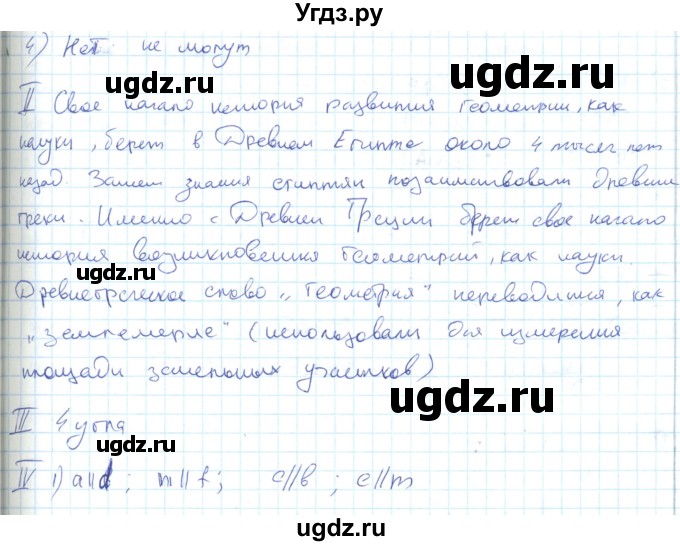 Угдз.ру
4) Нет не могут
ugdz.ru
ugdz.ru
II Свое начало история развития геометрии, как
науки, берет в Древнем Египте около 4 тысяч лет
ugdz.ru
назад. Затем знания египтян позаимствовали древние
греки. Именно с Древней Греции берет свое начало
история возникновения геометрий, как науки.
ugdz.ru
Древнегреческое слово „геометрия" переводится, как
„землемерие" (использовали для измерения
площади земельных участков)
ugdz.ru
ugdz.ru
III 4 угла
ugdz.ru
IV 1) a||d; n||f; c||b; e||m
ugdz.ru